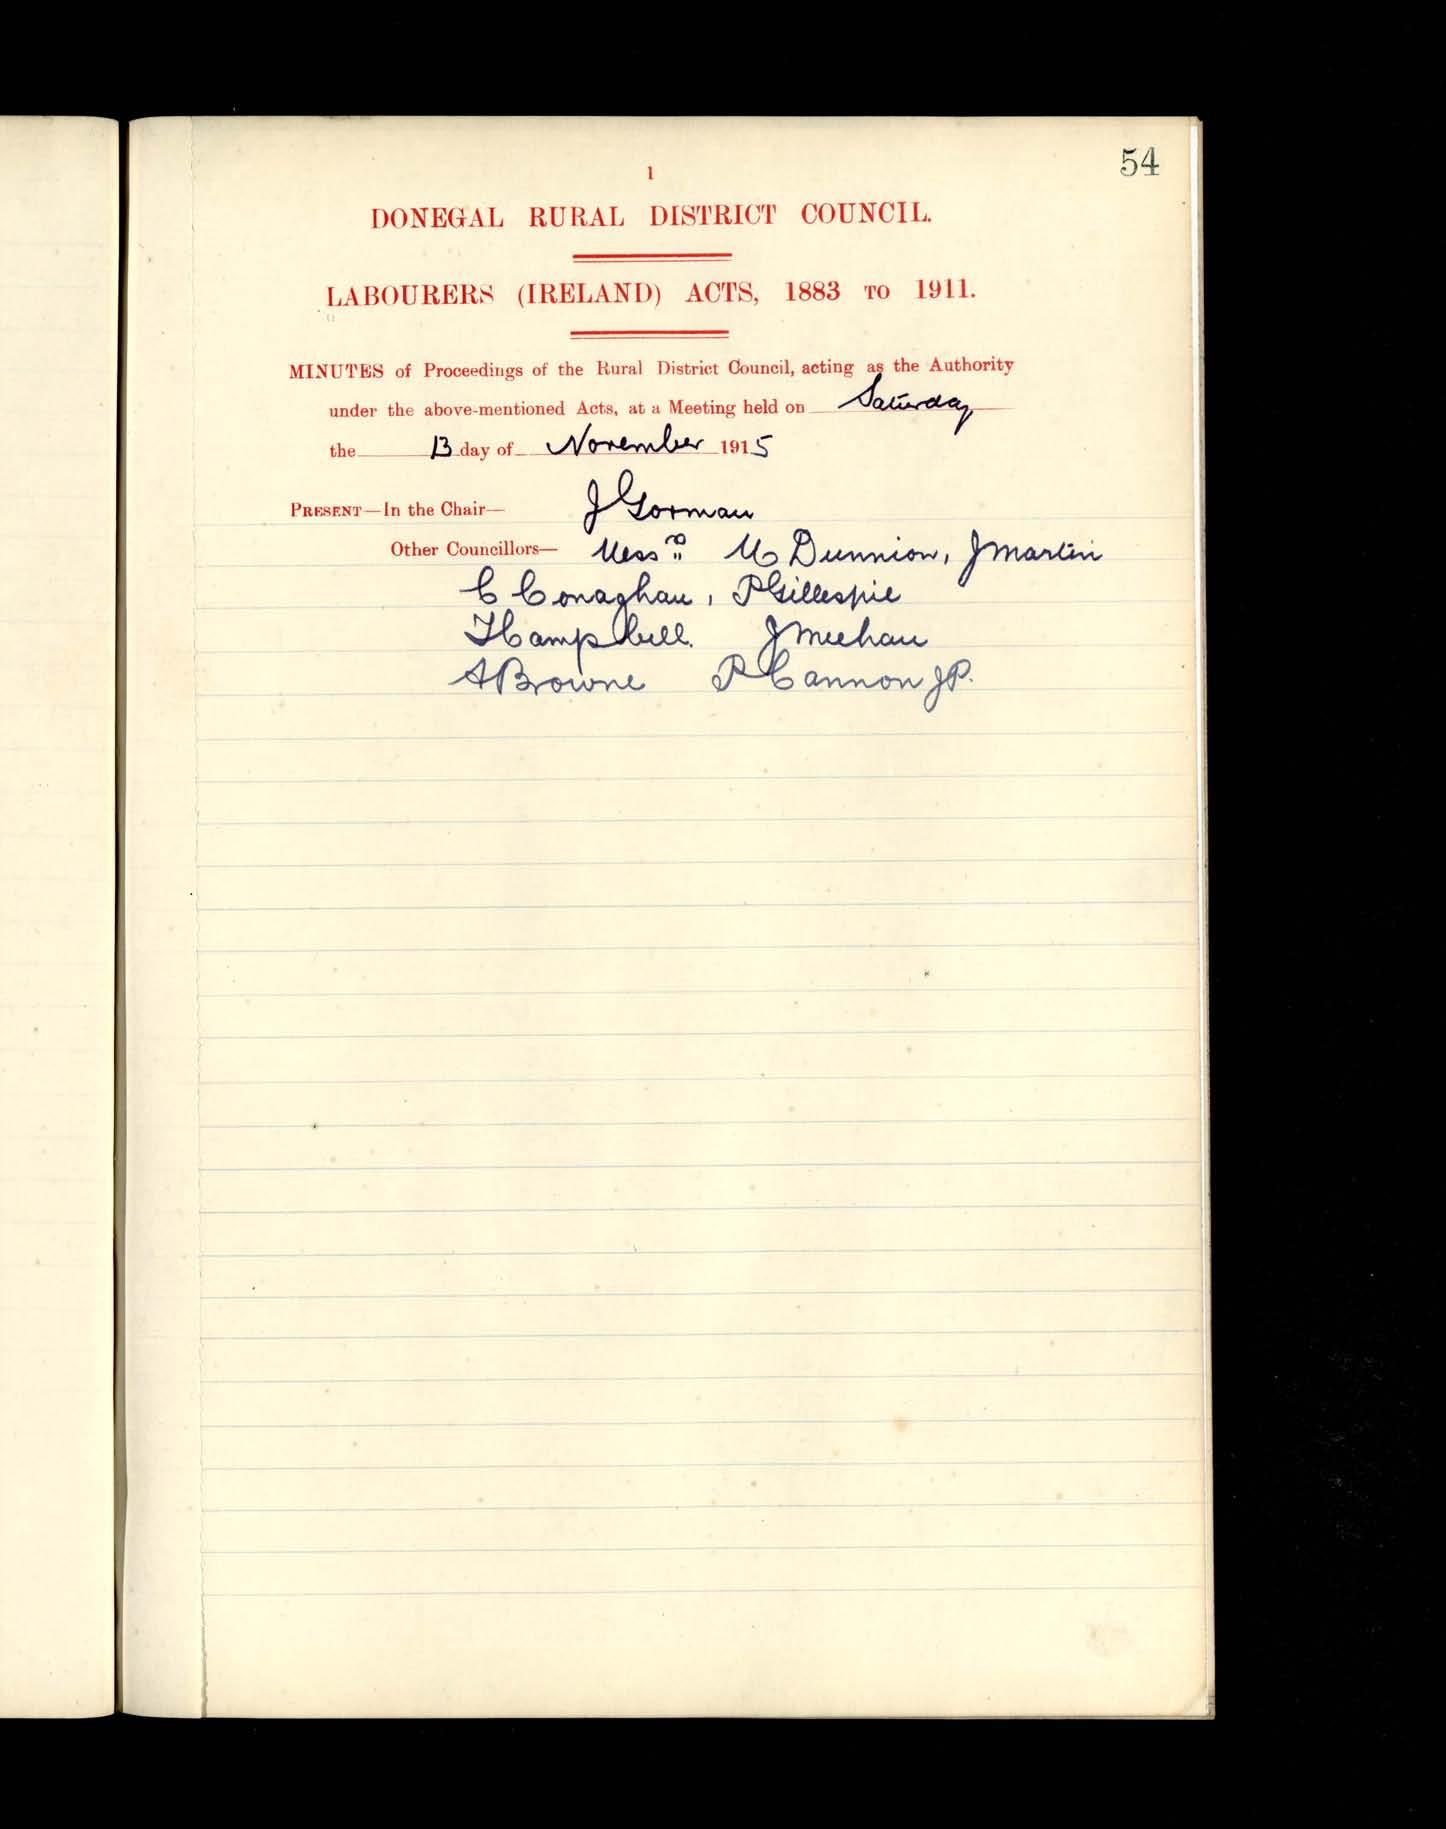 54
1
DONEGAL RURAL DISTRICT COUNCIL.
LABOURERS (IRELAND) ACTS, 1883 TO 1911.
MINUTES of Proceedings of the Rural District Council, acting as the Authority
under the above-mentioned Acts, at a Meeting held on Saturday
the 13 day of November 1915
PRESENT—In the Chair— J Gorman
Other Councillors— Messrs M Dunnion, J Martin
C Conaghan, P Gillespie
H Campbell. J Meehan
A Browne P Cannon J.P.